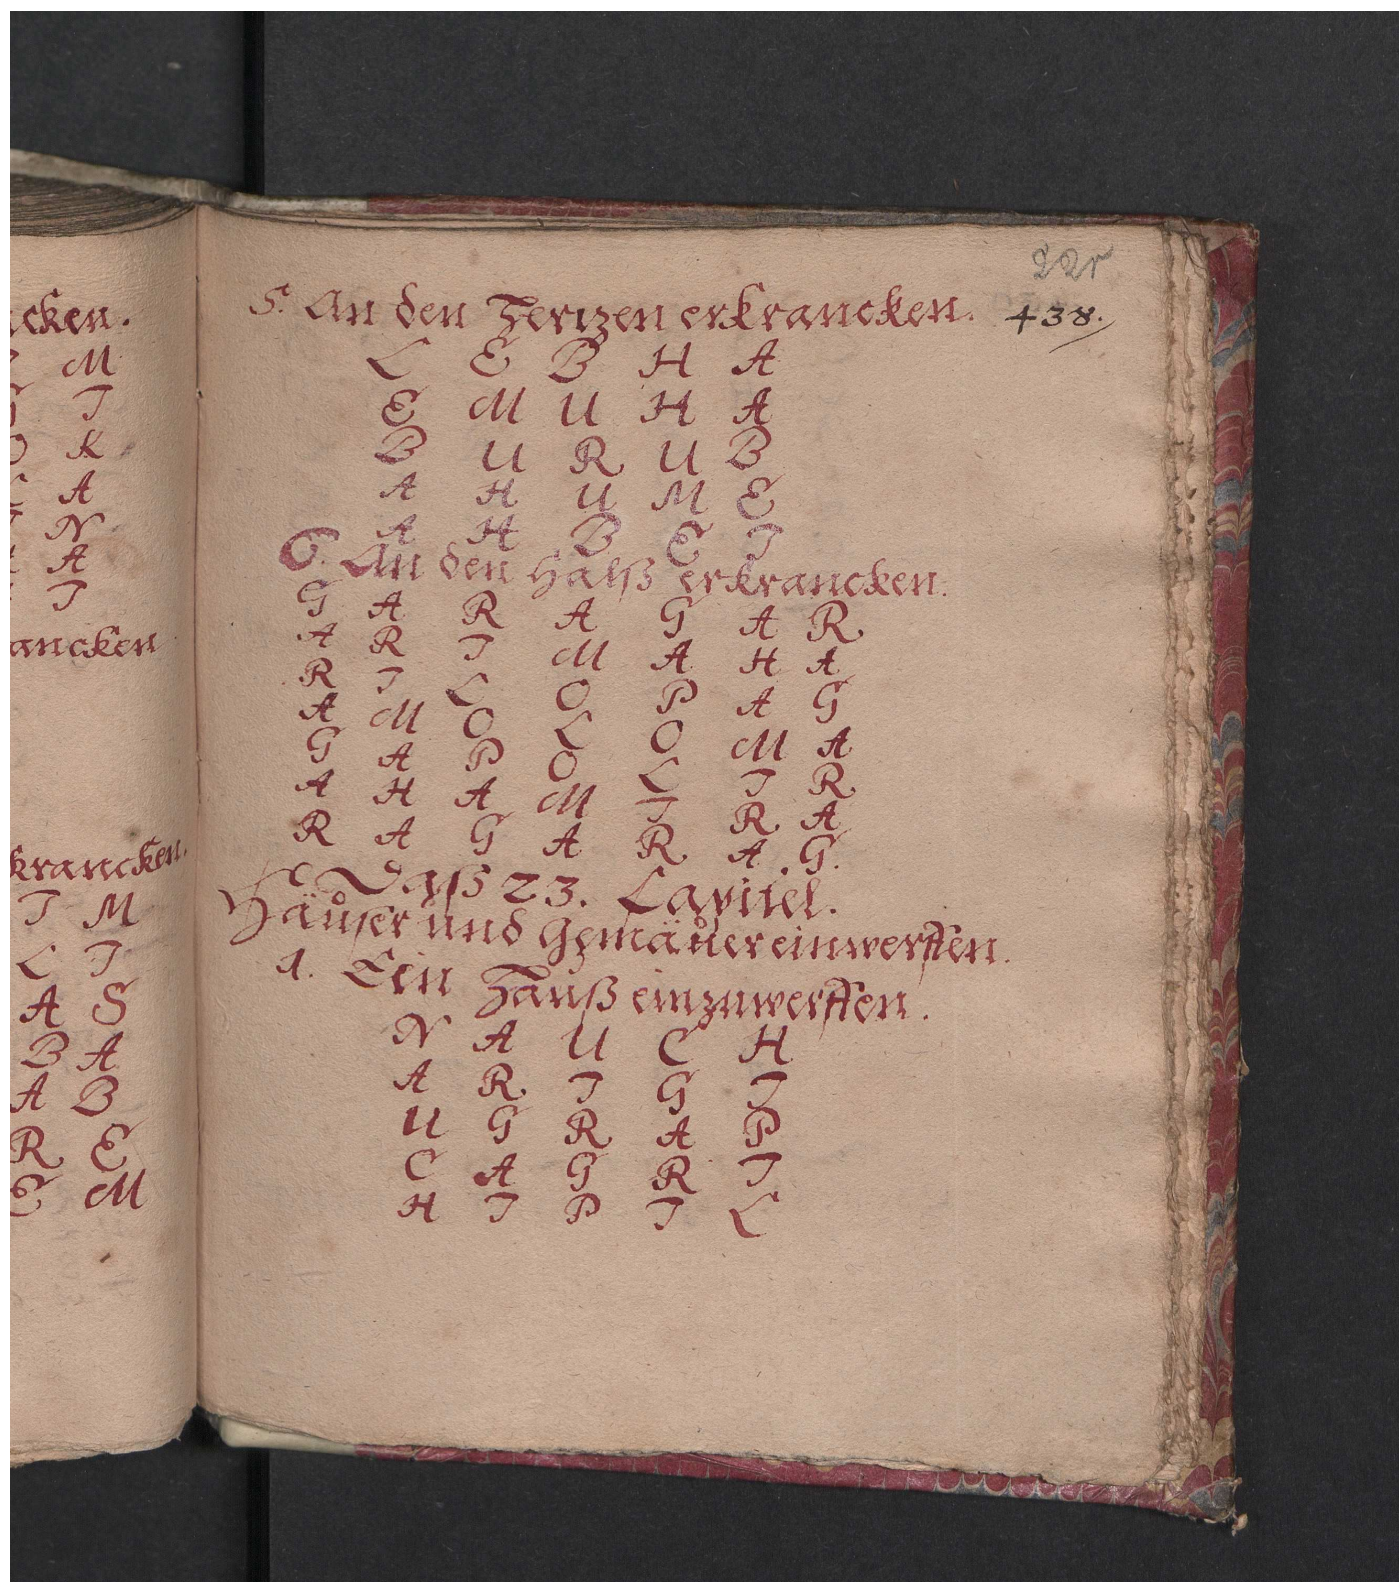 cken.
M
T
O K
A
N
A
T
ancken
krancken.
T M
L T
A S
B A
A B
R E
E M
22r
5. An den Hertzen erkrancken. 438.
L E B H A
E M U H A
B U R U B
A H U M E
A H B E T
6. An den Halß erkrancken.
G A R A G A R
A R T M A H A
R T L O P A G
A M O L O M A
G A P O L T R
A H A M T R A
R A G A R A G.
Daß 23. Capitel.
Häuser und Gemäuer einwerffen.
1. Ein Hauß einzuwerffen.
N A U C H
A R T G T
U G R A P
C A G R T
H T P T L